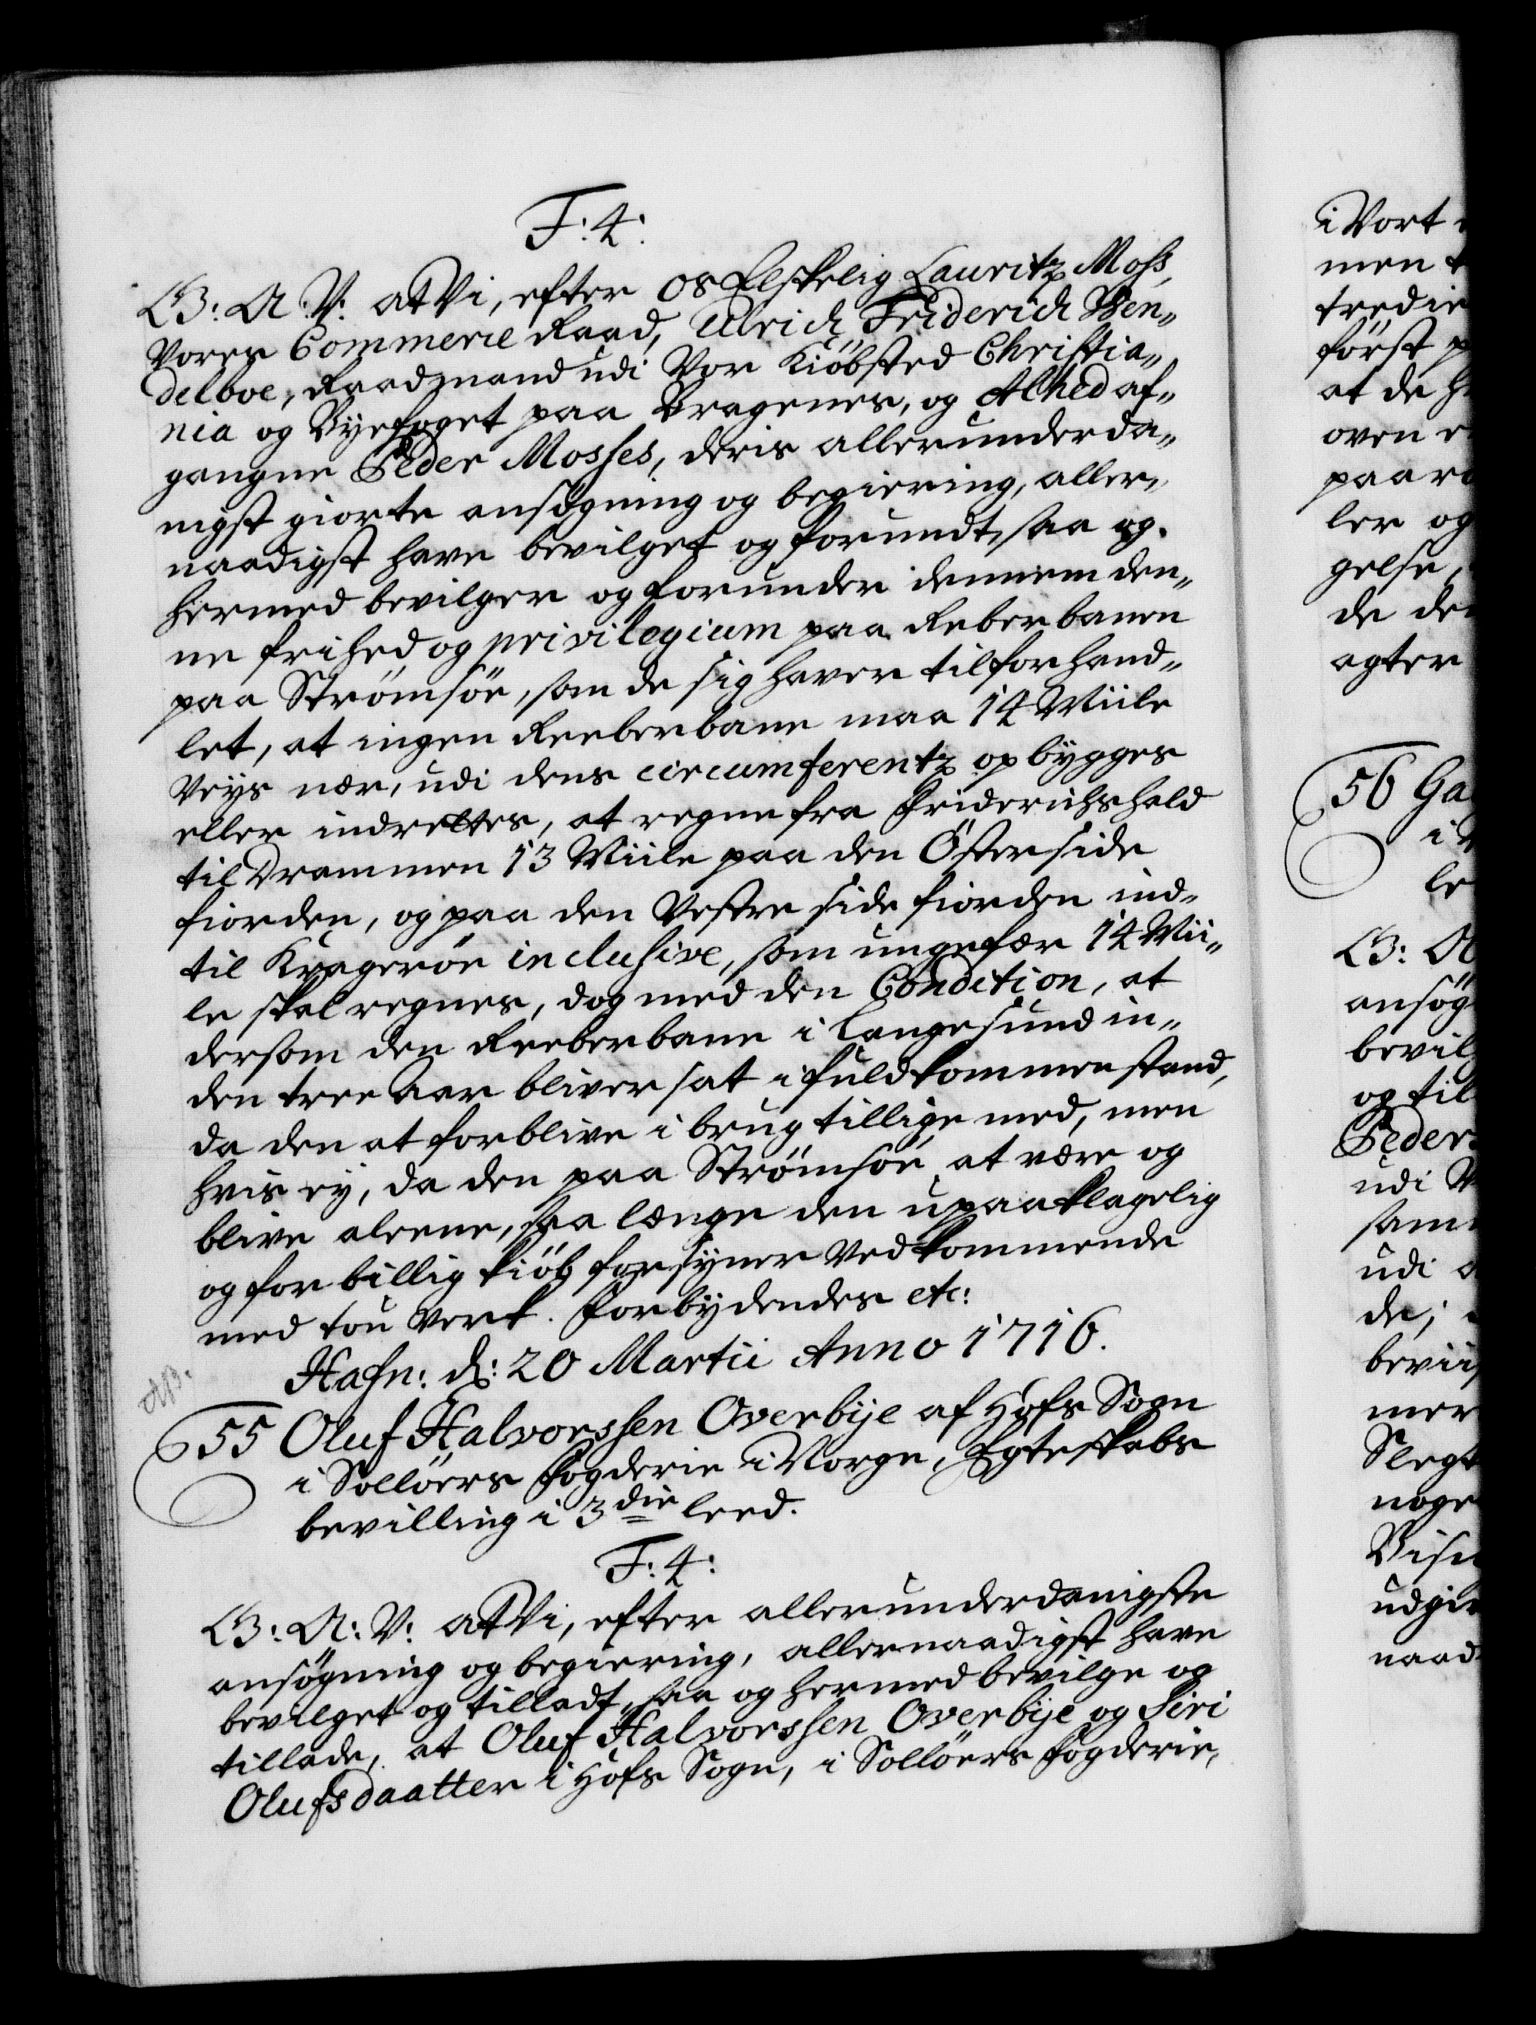 F: 4:
G: A: V: at Vi, efter os Elskelig Lauritz Moss,
Vores Commerce Raad, Ulrich Friderich Ben„
delboe, Raadmand udi Vor Kiöbsted Christia„
nia og Byefoget paa Bragenes, og Alhed af„
gangne Peder Mosses, deris allerunderda„
nigst giorte ansögning og begiering, aller„
naadigst have bevilget og forundt, saa og
hermed bevilger og forunder dennem den„
ne frihed og privilegium paa Reberbanen
paa Strömsöe, som de sig haver tilforhand„
let, at ingen Reeberbane maa 14 Miile
Veys nær, udi dens circumferentz opbygges
eller indrettes, at regne fra Friderichshald
til Drammen 13 Miile paa den Öster side
fiorden, og paa den Vestre side fiorden ind„
til Kragerøe inclusive, som ungefær 14 Mii„
le skal regnes, dog med den Condition, at
dersom den Reeberbane i Langesund in„
den tree Aar bliver sat i fuldkommen stand,
da den at forblive i brug tillige med, men
hvis ey, da den paa Strömsöe at være og
blive aleene, saa længe den upaaklagelig
og for billig kiöb forsyner Vedkommende
med tou Verk. Forbydendes etc:
Hafn: d: 20 Martii Anno 1716.
55 Oluf Halvorssen Overbye af Hofs Sogn
i Sollöers Fogderie i Norge, Egteskabs
bevilling i 3die leed.
F: 4:
G: A: V: at Vi, efter allerunderdanigste
ansögning og begiering, allernaadigst have
bevilget og tilladt, saa og hermed bevilge og
tillade, at Oluf Halvorssen Overbye og Siri
Olufsdaatter i Hofs Sogn, i Sollöers Fogderie,
i Vort
men
tredie
först
at de
oven
paa
ler og
gelse,
de
agter
56
i
le
G: A
ansög
bevil
og til
Peder
udi
sam
udi
de;
beviis
mer
Slegt
noge
udgi
naad